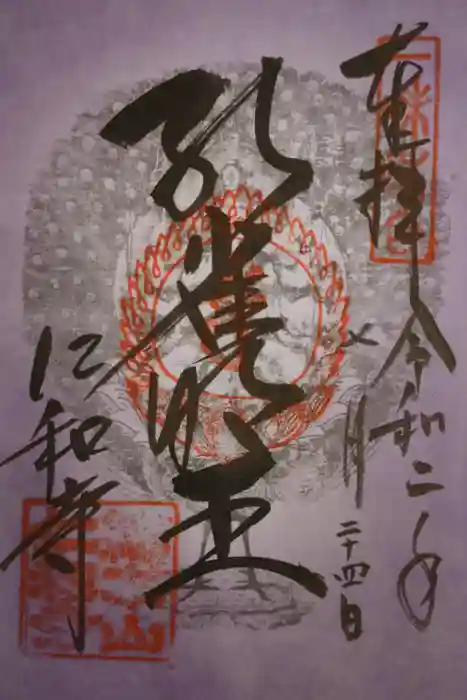 奉拝 令和二年
月 二十四日
孔雀明王
仁和寺